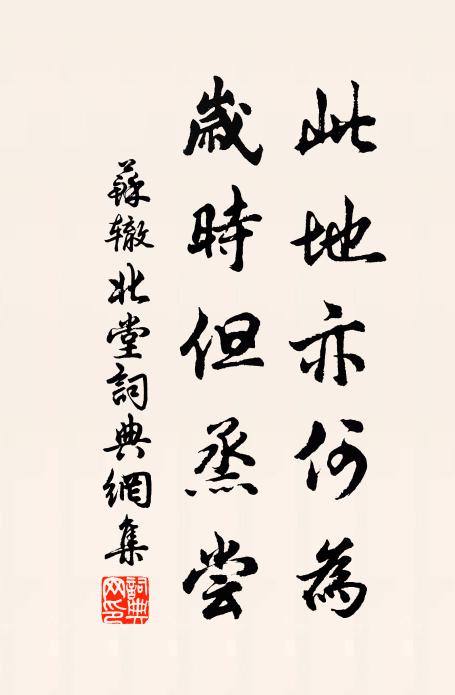 此地亦何為
歲時但烝嘗
蘇轍北堂詞典網集
詞典网印